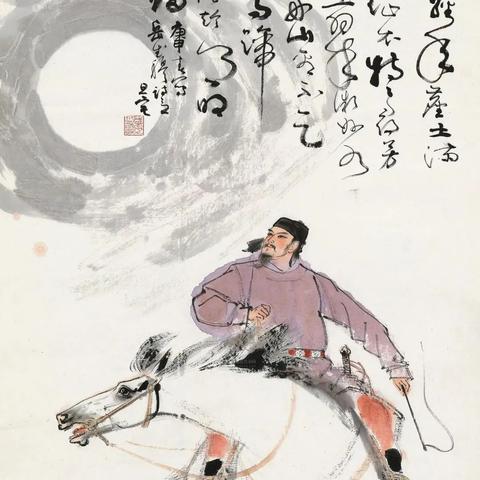 經年塵土滿
征衣特特尋芳
上翠微好水
好山看不足
馬蹄
催趁月明
歸
岳武穆詩意
旦宅